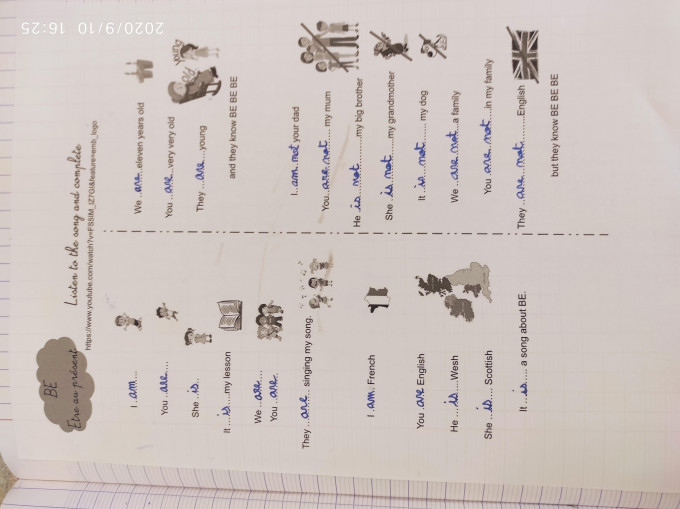 BE
Etre au présent
Listen to the song and complete
https://www.youtube.com/watch?v=FSSIM_iZ7GI&feature=emb_logo
I am....
You ..are....
She ..is..
It ...is.....my lesson
We ..are...
You ..are..
They ...are......singing my song.
I .am. French
You .are English
He ...is....Wesh
She ...is.... Scottish
It ...is..... a song about BE.
We ..are...eleven years old
You ..are...very very old
They ...are....young
and they know BE BE BE
I..am not your dad
You..are.not..... my mum
He is...not........my big brother
She .is not.......my grandmother
It ..is...not....... my dog
We ..are not...a family
You ..are..not....in my family
They ..are...not........English
but they know BE BE BE BE
young
old
2020/9/10 16:25